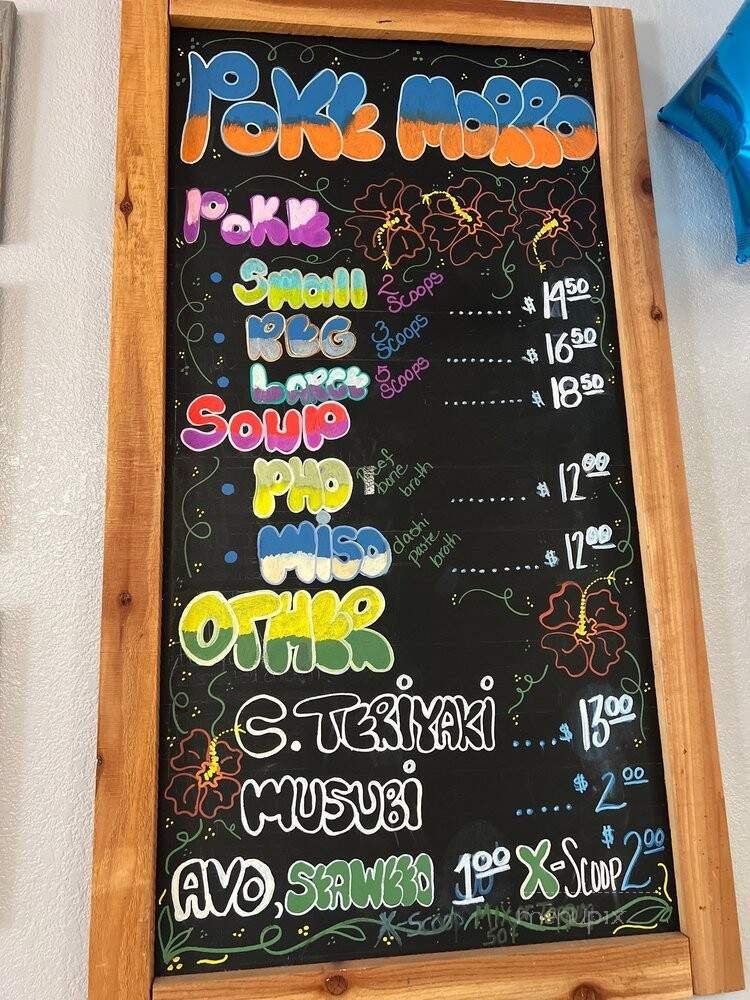 POKE MORRO
POKE
• Small 2 Scoops ...... $ 14 50
• REG 3 Scoops ...... $ 16 50
• LARGE 5 Scoops ...... $ 18 50
Soup
• PHO Beef bone broth ...... $ 12 00
• MISO dashi paste broth ...... $ 12 00
OTHER
C. TERIYAKI .... $ 13 00
MUSUBI ..... $ 2 00
AVO, SEAWEED 1 00 X-Scoop $ 2 00
menupix